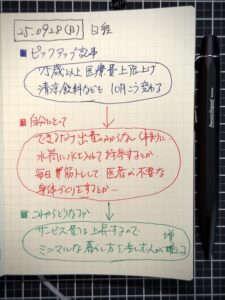 25.0928(日) 日経
■ピックアップ記事
75歳以上 医療費上限上げ
清涼飲料なども 10月こう変わる
■自分にとって
できるだけ出費のかからない(ように)
水筒に水を入れて持参するとか
毎日筋トレして、医者が不要な
身体づくりをするとか…
■これからどうなるか
サービス費は上昇するので
ミニマルな暮らし方を楽しむ人が増える